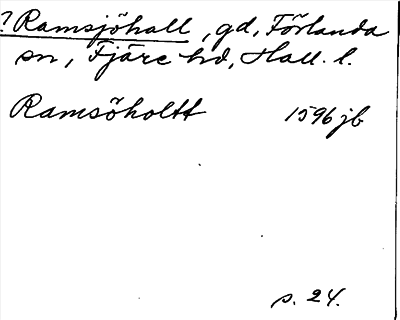 ? Ramsjöhall, gd, Förlanda
sn, Fjäre hd, Hall. l.
Ramsöholtt 1596 jb
s. 24.